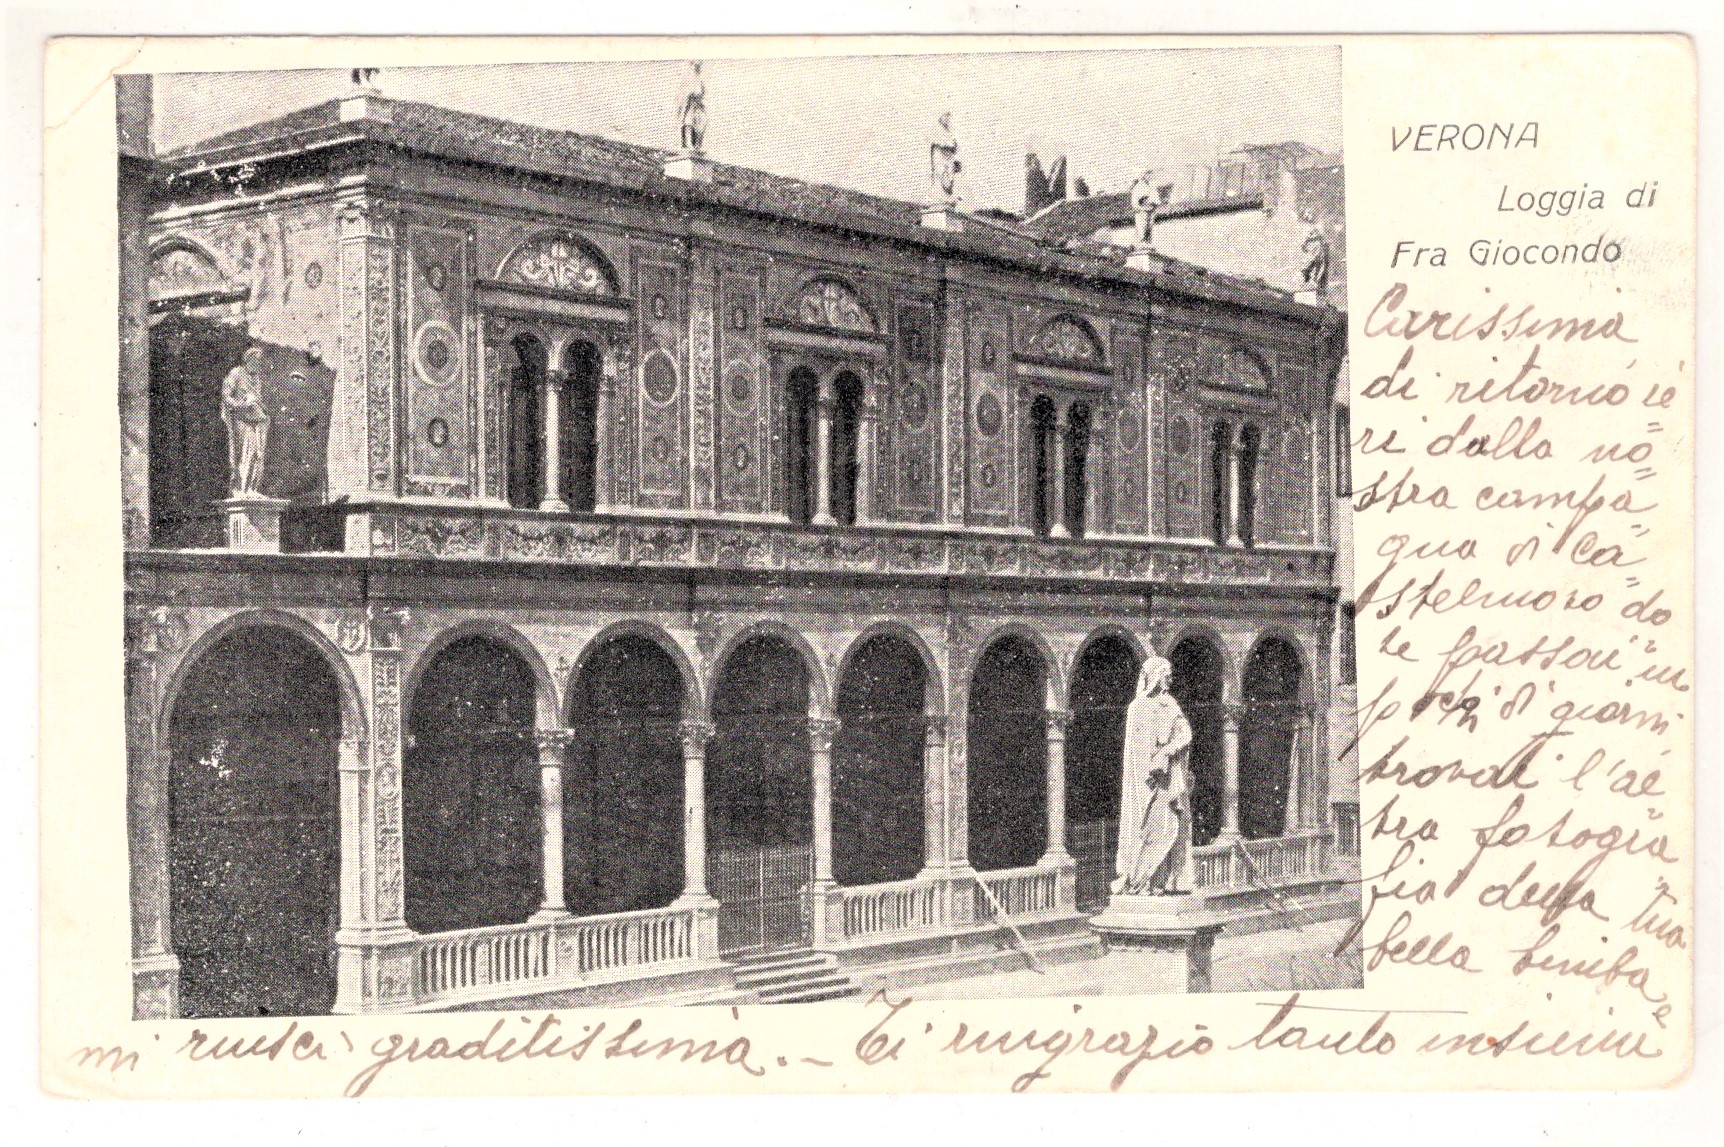 VERONA
Loggia di
Fra Giocondo
Carissima
di ritorno ie
ri dalla no=
stra campa=
gna di Ca=
stelnuovo do=
ve passai in
pochi di giorni
trovai l'al=
tra fotogra=
fia della tua
bella bimba e
mi riuscì graditissima. – Ti ringrazio tanto insieme